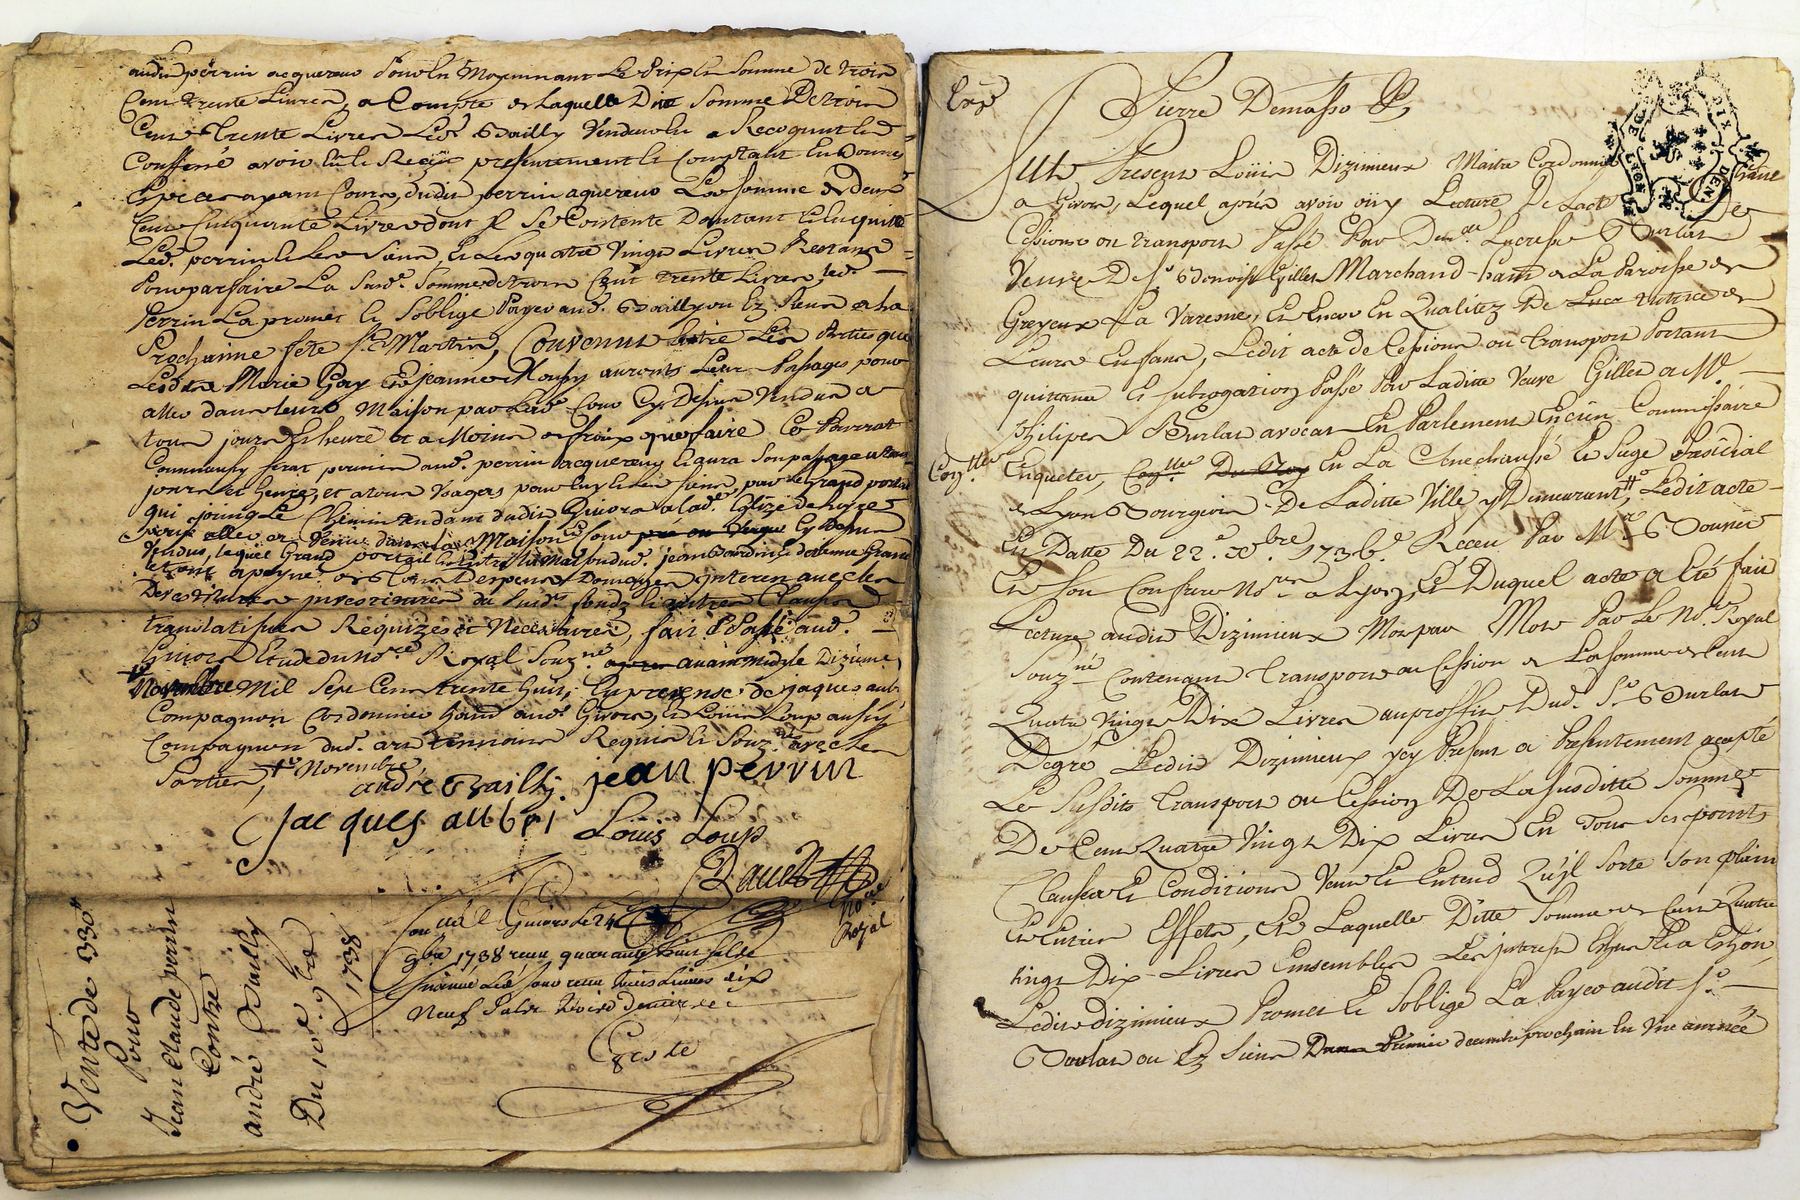 audit perrin acquereur Pour Et Moyennant Le Prix Et Somme de trois
Cent trente Livres, a Compte de Laquelle Ditte Somme De trois
Cent Trente Livres Led. Bailly Vendeur a Reconnu Et
Confessé avoir Eu Et Receu presentement Et Comptant En Bonnes
Especes ayant Cours, dudit perrin aquereur La Somme de deux
Cent Cinquante Livres dont Il Se Contente D'autant Et En quitte
Led. perrin Et Les Siens, Et Les quatre Vingt Livres Restant
Pour parfaire La Susd. Somme de trois Cent trente Livres, led.
Perrin La promet Et S'oblige Payer aud. Bailly ou Ez Siens a La
Prochaine fête St Martin, Convenu Entre Les Parties que
Marie Et Jeanne auront Leur Passage pour
aller dans leurs Maison par Lad. Cour Cy Dessus Vendue a
tous jours Et heure Et a Moins de fraix que faire Ce Pourrat
aud. perrin acquereur Et aura Son passage a tous
jours et heure, et a tous Usages pour luy Et Les Siens, par le grand portail
qui joint Le Chemin tendant dudit Givors a lad. Eglise de
pour aller et Venir dans la Maison
Vendus, lequel Grand portail
et De tous Despens Domages Interets avec les
du Susd. fonds Et autres Clauses
translatives Requizes et Necessaires, fait Et Passé aud.
Givors Etude du No.re Royal Souz.né avant midy le Dizieme
Novembre Mil Sept Cent trente huit, En presence de jaques aubri
Compagnon Cordonnier habit. aud. Givors, Et Loüis Loup aussy
Compagnon dud. art temoins Requis Et Souz.nés avec les
Parties, + Novembre
andré Bailly. jean perrin
jacques aubri Loüis Loup
Dauel
No.re
Royal
Controllé a Givors Le 24
9bre 1738 receu quarante
Insinué led. jour receu trois Livres dix
Neuf Sols
Coste
Vente de 330#
Pour
Jean Claude perrin
Contre
andré Bailly
Du 10e 9bre
1738
Exp.é
Pierre Demasso
Fut Present Loüis Dizimieux Maitre Cordonnier
a Givors, Lequel après avoir oüy Lecture De L'acte De
Cessions ou transport Passé Par Dem.lle Lucresse Burlat
Veuve De S.r Benoist Gilles Marchand habit. de La Paroisse de
Grezieux La Varenne, Et Encor En Qualitez De tutrice de
Leurs Enfans, Ledit acte de Cessions ou Transport Portant
quittance Et subrogation Passé Par Laditte Veuve Gilles a M.e
Philipes Burlat avocat En Parlement Encien Commissaire
Con.ller Enqueteur, Con.ller Du Roy En La Cenechaussé Et Siege Présidial
de Lyon Bourgeois De Laditte Ville y Demeurant, Ledit acte
En Datte Du 22.e Xbre 1736 Receu Par M.e
Et Son Confrere No.res a Lyon, Et Duquel acte a Eté fait
Lecture audit Dizimieux Mot par Mot Par Le No.re Royal
Souz.né Contenant Transport ou Cession de La Somme de Cent
Quatre Vingt Dix Livres au proffit Dud. S.r Burlat
De gré Ledit Dizimieux icy Present a Presentement accepté
Le Susdit Transport ou Cession De La Susditte Somme
De Cent Quatre Vingt Dix Livres En Tous Ses points
Clauses Et Conditions Veut Et Entend Qu'il Sorte Son plain
Et Entier Effets, Et Laquelle Ditte Somme de Cent Quatre
Vingt Dix Livres Ensembles Les Interest
Ledit Dizimieux Promet Et S'oblige La Payer audit S.r
Burlat ou Ez Siens Dans Premier decembre prochain En Une année